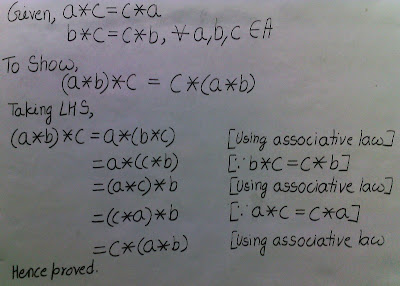 Given, a*c=c*a
b*c=c*b, ∀ a,b,c ∈A
To Show,
(a*b)*c = c*(a*b)
Taking LHS,
(a*b)*c = a*(b*c) [Using associative law]
=a*(c*b) [∵ b*c=c*b]
=(a*c)*b [Using associative law]
=(c*a)*b [∵ a*c=c*a]
=c*(a*b) [Using associative law
Hence proved.